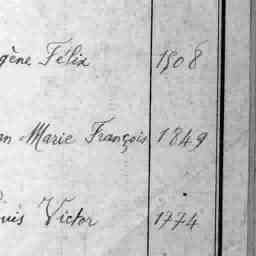 gène Félix 1508
n Marie François 1849
ouis Victor 1774